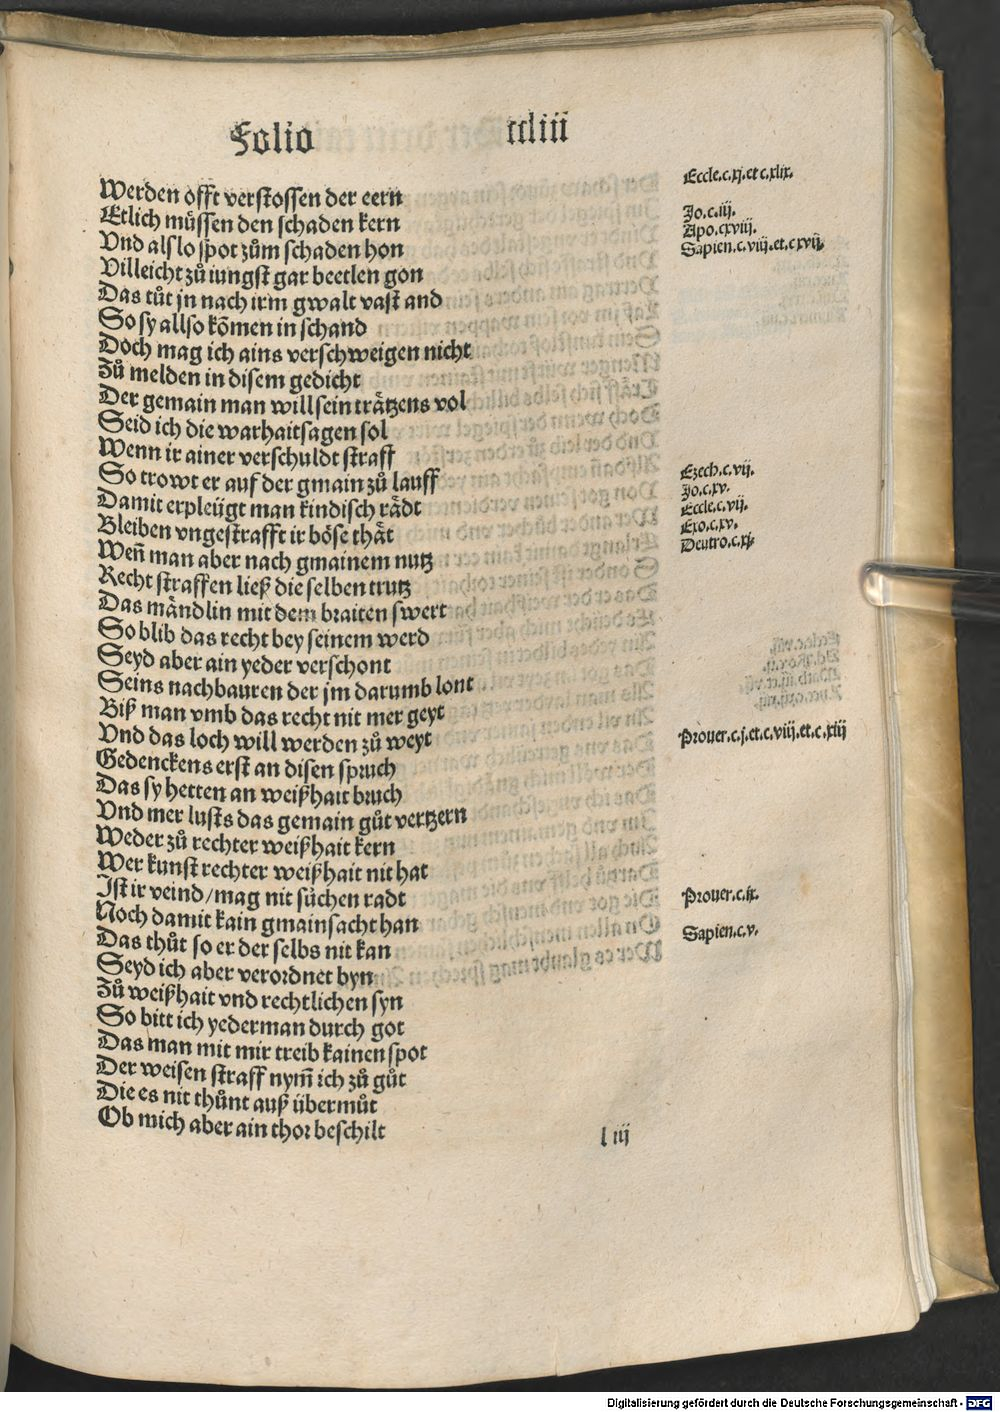 Folio ccliii
Werden offt verstossen der eern
Etlich müssen den schaden kern
Vnd als lo spot zům schaden hon
Villeicht zů iungst gar beetlen gon
Das tůt jn nach irm gwalt vast and
So sy allso kõmen in schand
Doch mag ich ains verschweigen nicht
Zů melden in disem gedicht
Der gemain man will sein trätzens vol
Seid ich die warhait sagen sol
Wenn ir ainer verschuldt straff
So trowt er auf der gmain zů lauff
Damit erpleügt man kindisch rädt
Bleiben vngestrafft ir böse thät
Weñ man aber nach gmainem nutz
Recht straffen ließ die selben trutz
Das mändlin mit dem braiten swert
So blib das recht bey seinem werd
Seyd aber ain yeder verschont
Seins nachbauren der jm darumb lont
Biß man vmb das recht nit mer geyt
Vnd das loch will werden zů weyt
Gedenckens erst an disen spruch
Das sy hetten an weißhait bruch
Vnd mer lusts das gemain gůt vertzern
Weder zů rechter weißhait kern
Wer kunst rechter weißhait nit hat
Ist ir veind/mag nit sůchen radt
Noch damit kain gmainsacht han
Das thůt so er der selbs nit kan
Seyd ich aber verordnet byn
Zů weißhait vnd rechtlichen syn
So bitt ich yederman durch got
Das man mit mir treib kainen spot
Der weisen straff nym̃ ich zů gůt
Die es nit thůnt auß übermůt
Ob mich aber ain thor beschilt
l iij
Eccle.c.xj.et c.xlix.
Jo.c.iij.
Apo.cxviij.
Sapien.c.viij.et.c.xvij.
Ezech.c.vij.
Jo.c.xv.
Eccle.c.vij.
Exo.c.xv.
Deutro.c.xj.
Prouer.c.j.et.c.viij.et.c.xiij
Prouer.c.ix.
Sapien.c.v.
Digitalisierung gefördert durch die Deutsche Forschungsgemeinschaft - DFG